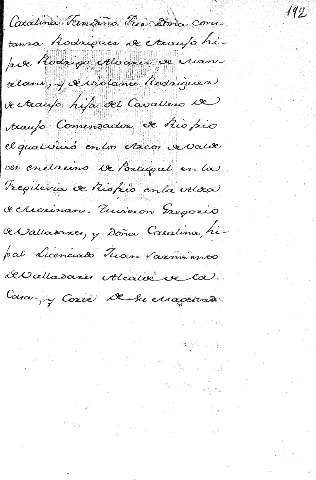 192
Catalina Fandiño Tres Doña Cons-
tanza Rodriguez de Araujo hi-
ja de Rodrigo Alvarez de
y de Violante Rodriguez
de Araujo hija del Cavallero de
Araujo Comendador de Riofrio
el qual vivió en los Arcos de Valde
ves en el reino de Portugal en la
Freguesia de Riofrio en la Aldea
de Morinan. Tuvieron Gregorio
de Valladares, y Doña Catalina, hi-
ja al Licenciado Juan Sarmiento
de Valladares Alcalde de la
Casa, y Corte de Su Magestad